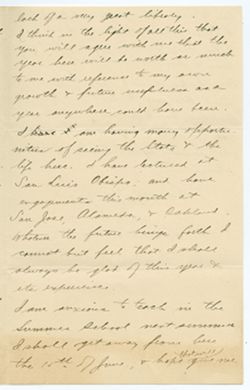 lack of a very great library.
I think in the light of all this that
you will agree with me that the
year here will be worth as much
to me with reference to my own
growth & future usefulness as a
year anywhere could have been.
I am having many opportu-
nities of seeing the State & the
life here. I have lectured at
San Luis Obispo, and have
engagements this month at
San Jose, Alameda, & Oakland.
Whatever the future brings forth I
cannot but feel that I shall
always be glad of this year &
its experience.
I am anxious to teach in the
Summer School next summer
I shall get away from here
the 10th of June, & hope give me